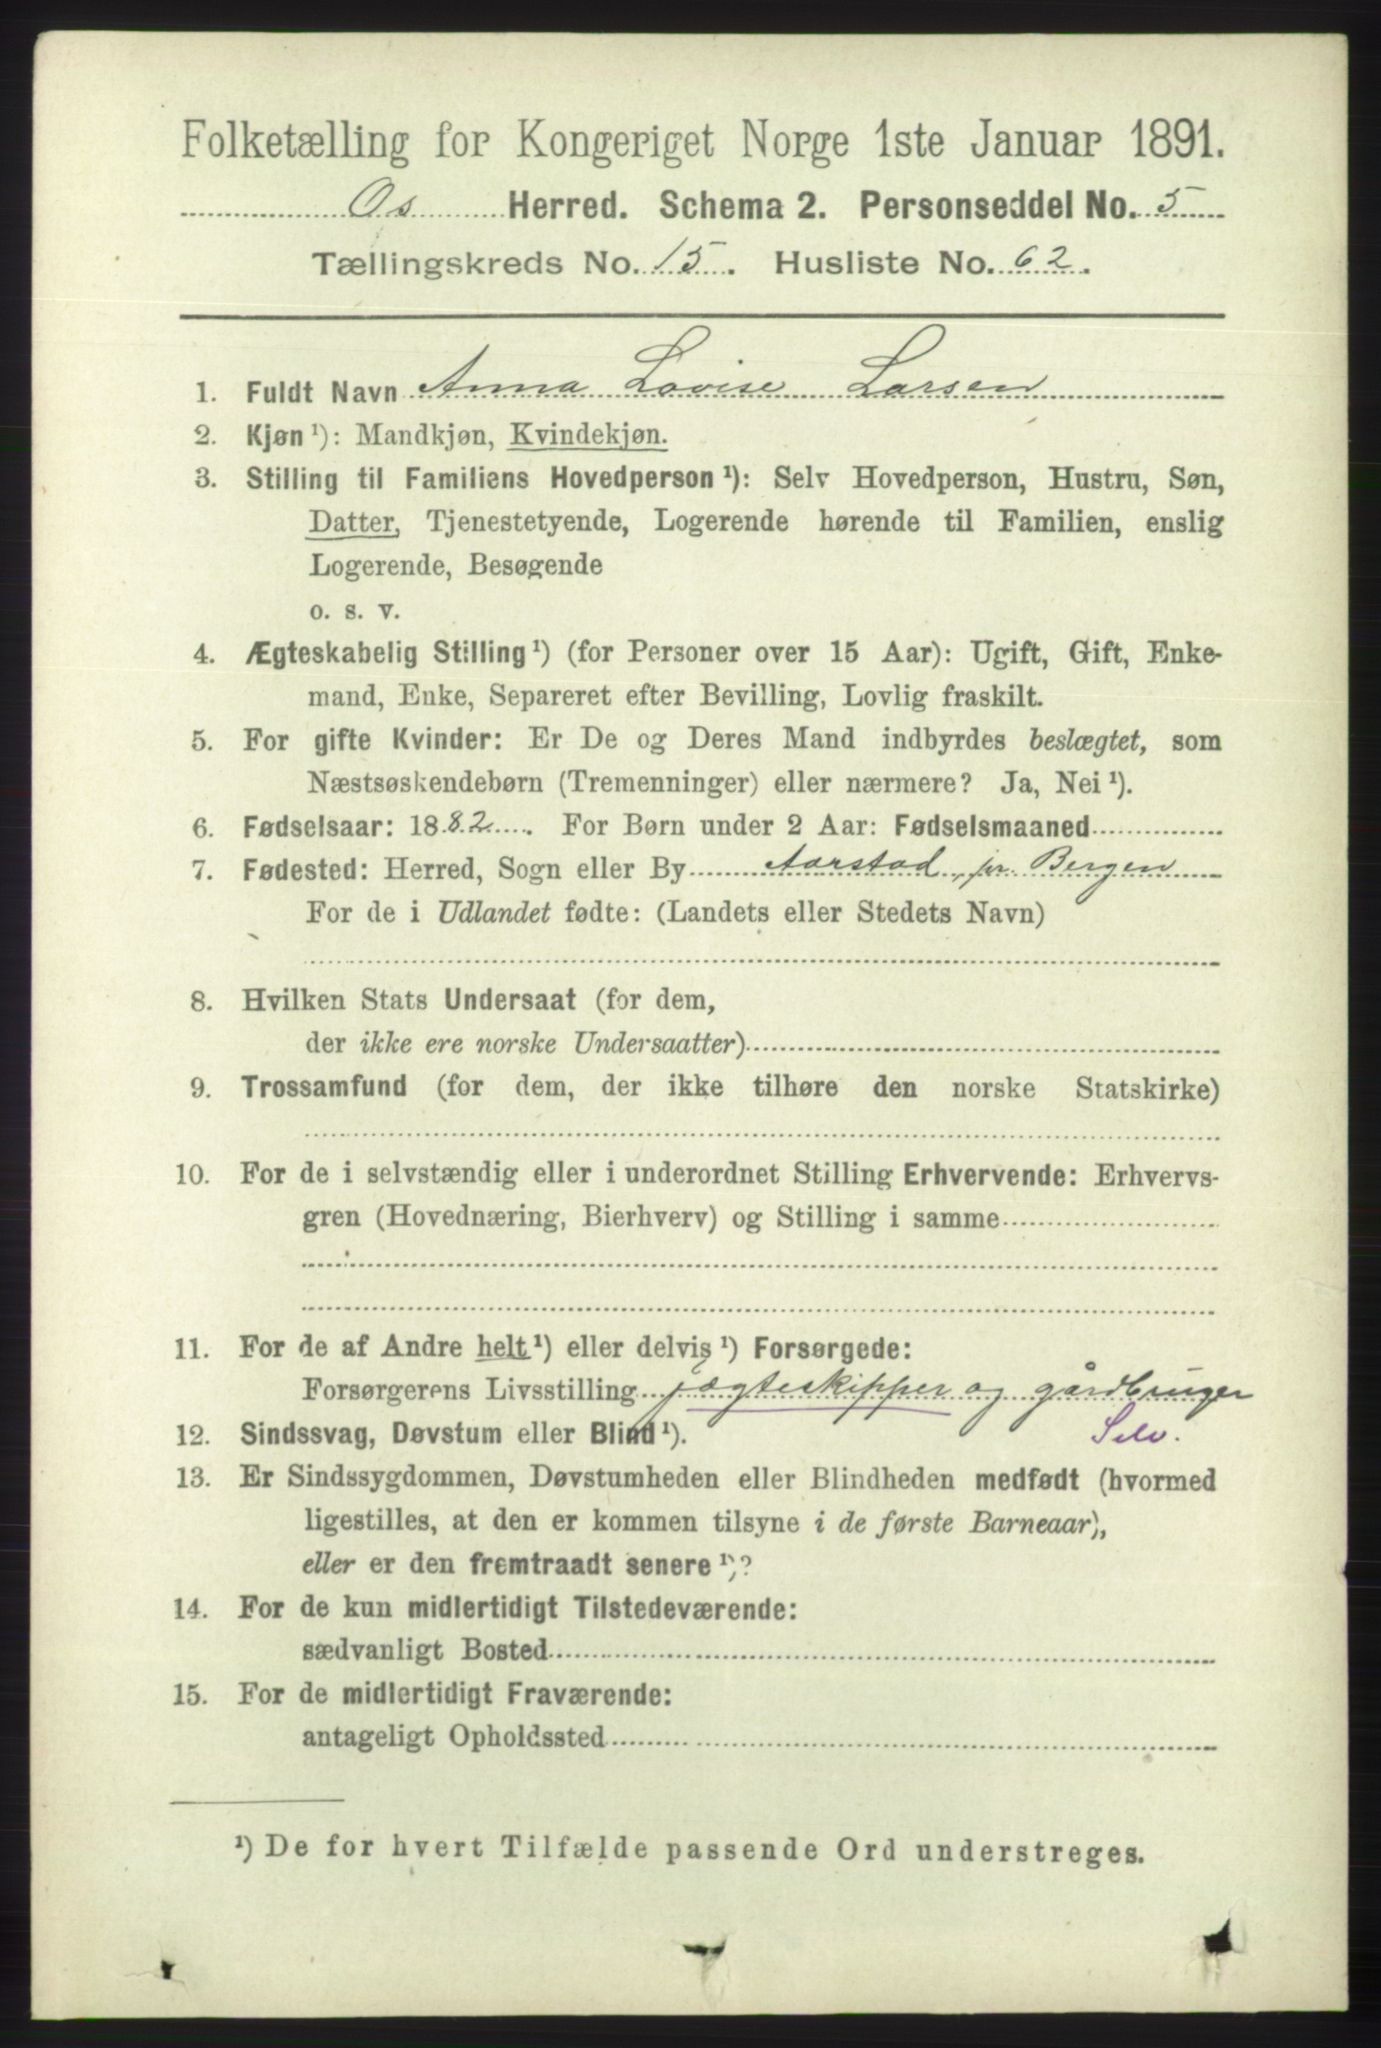 Folketælling for Kongeriget Norge 1ste Januar 1891.
Os Herred. Schema 2. Personseddel No. 5
Tællingskreds No. 15. Husliste No. 62.
1. Fuldt Navn Anna Lovise Larsen
2. Kjøn ¹): Mandkjøn, Kvindekjøn.
3. Stilling til Familiens Hovedperson ¹): Selv Hovedperson, Hustru, Søn,
Datter, Tjenestetyende, Logerende hørende til Familien, enslig
Logerende, Besøgende
o. s. v.
4. Ægteskabelig Stilling ¹) (for Personer over 15 Aar): Ugift, Gift, Enke-
mand, Enke, Separeret efter Bevilling, Lovlig fraskilt.
5. For gifte Kvinder: Er De og Deres Mand indbyrdes beslægtet, som
Næstsøskendebørn (Tremenninger) eller nærmere? Ja, Nei ¹).
6. Fødselsaar: 1882. For Børn under 2 Aar: Fødselsmaaned
7. Fødested: Herred, Sogn eller By Aarstad, pr. Bergen
For de i Udlandet fødte: (Landets eller Stedets Navn)
8. Hvilken Stats Undersaat (for dem,
der ikke ere norske Undersaatter)
9. Trossamfund (for dem, der ikke tilhøre den norske Statskirke)
10. For de i selvstændig eller i underordnet Stilling Erhvervende: Erhvervs-
gren (Hovednæring, Bierhverv) og Stilling i samme
11. For de af Andre helt ¹) eller delvis ¹) Forsørgede:
Forsørgerens Livsstilling jægteskipper og gårdbruger
12. Sindssvag, Døvstum eller Blind ¹). Selv.
13. Er Sindssygdommen, Døvstumheden eller Blindheden medfødt (hvormed
ligestilles, at den er kommen tilsyne i de første Barneaar),
eller er den fremtraadt senere ¹)?
14. For de kun midlertidigt Tilstedeværende:
sædvanligt Bosted
15. For de midlertidigt Fraværende:
antageligt Opholdssted
¹) De for hvert Tilfælde passende Ord understreges.